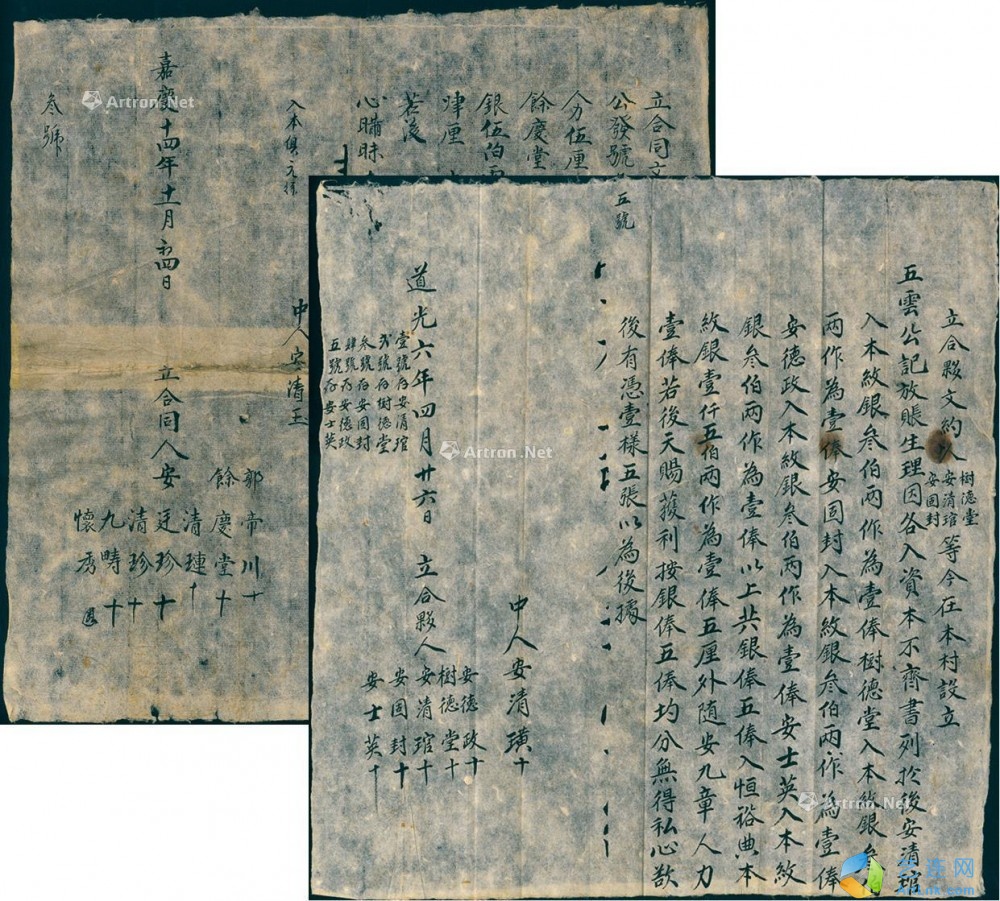 立合夥文約人樹德堂安清琯安固封等今在本村設立
五雲公記放賬生理因各入資本不齊書列於後安清琯
入本紋銀叁伯兩作為壹俸樹德堂入本紋銀叁
兩作為壹俸安固封入本紋銀叁伯兩作為壹俸
安德政入本紋銀叁伯兩作為壹俸安士英入本紋
銀叁伯兩作為壹俸以上共銀俸五俸入恒裕典本
紋銀壹仟五伯兩作為壹俸五厘外隨安九章人力
壹俸若後天賜獲利按銀俸五俸均分無得私心欺
後有憑壹樣五張以為後據
五號
中人安清璜十
道光六年四月廿六日
立合夥人
安德政十
樹德堂十
安清琯十
安固封十
安士英十
壹號存安清琯
貳號存樹德堂
叁號存安固封
肆號存安德政
五號存安士英
立合同文
公發號
人力伍厘
餘慶堂
銀伍伯兩
俸厘
若後
心瞞昧
入本俱元祥
中人安清玉
嘉慶十四年十一月初四日
立合同人安
郭帝川十
餘慶堂十
清璉十
廷珍十
清珍十
九疇十
懷秀
叁號
Artron.Net
Artron.Net
Artron.Net
Artron.Net